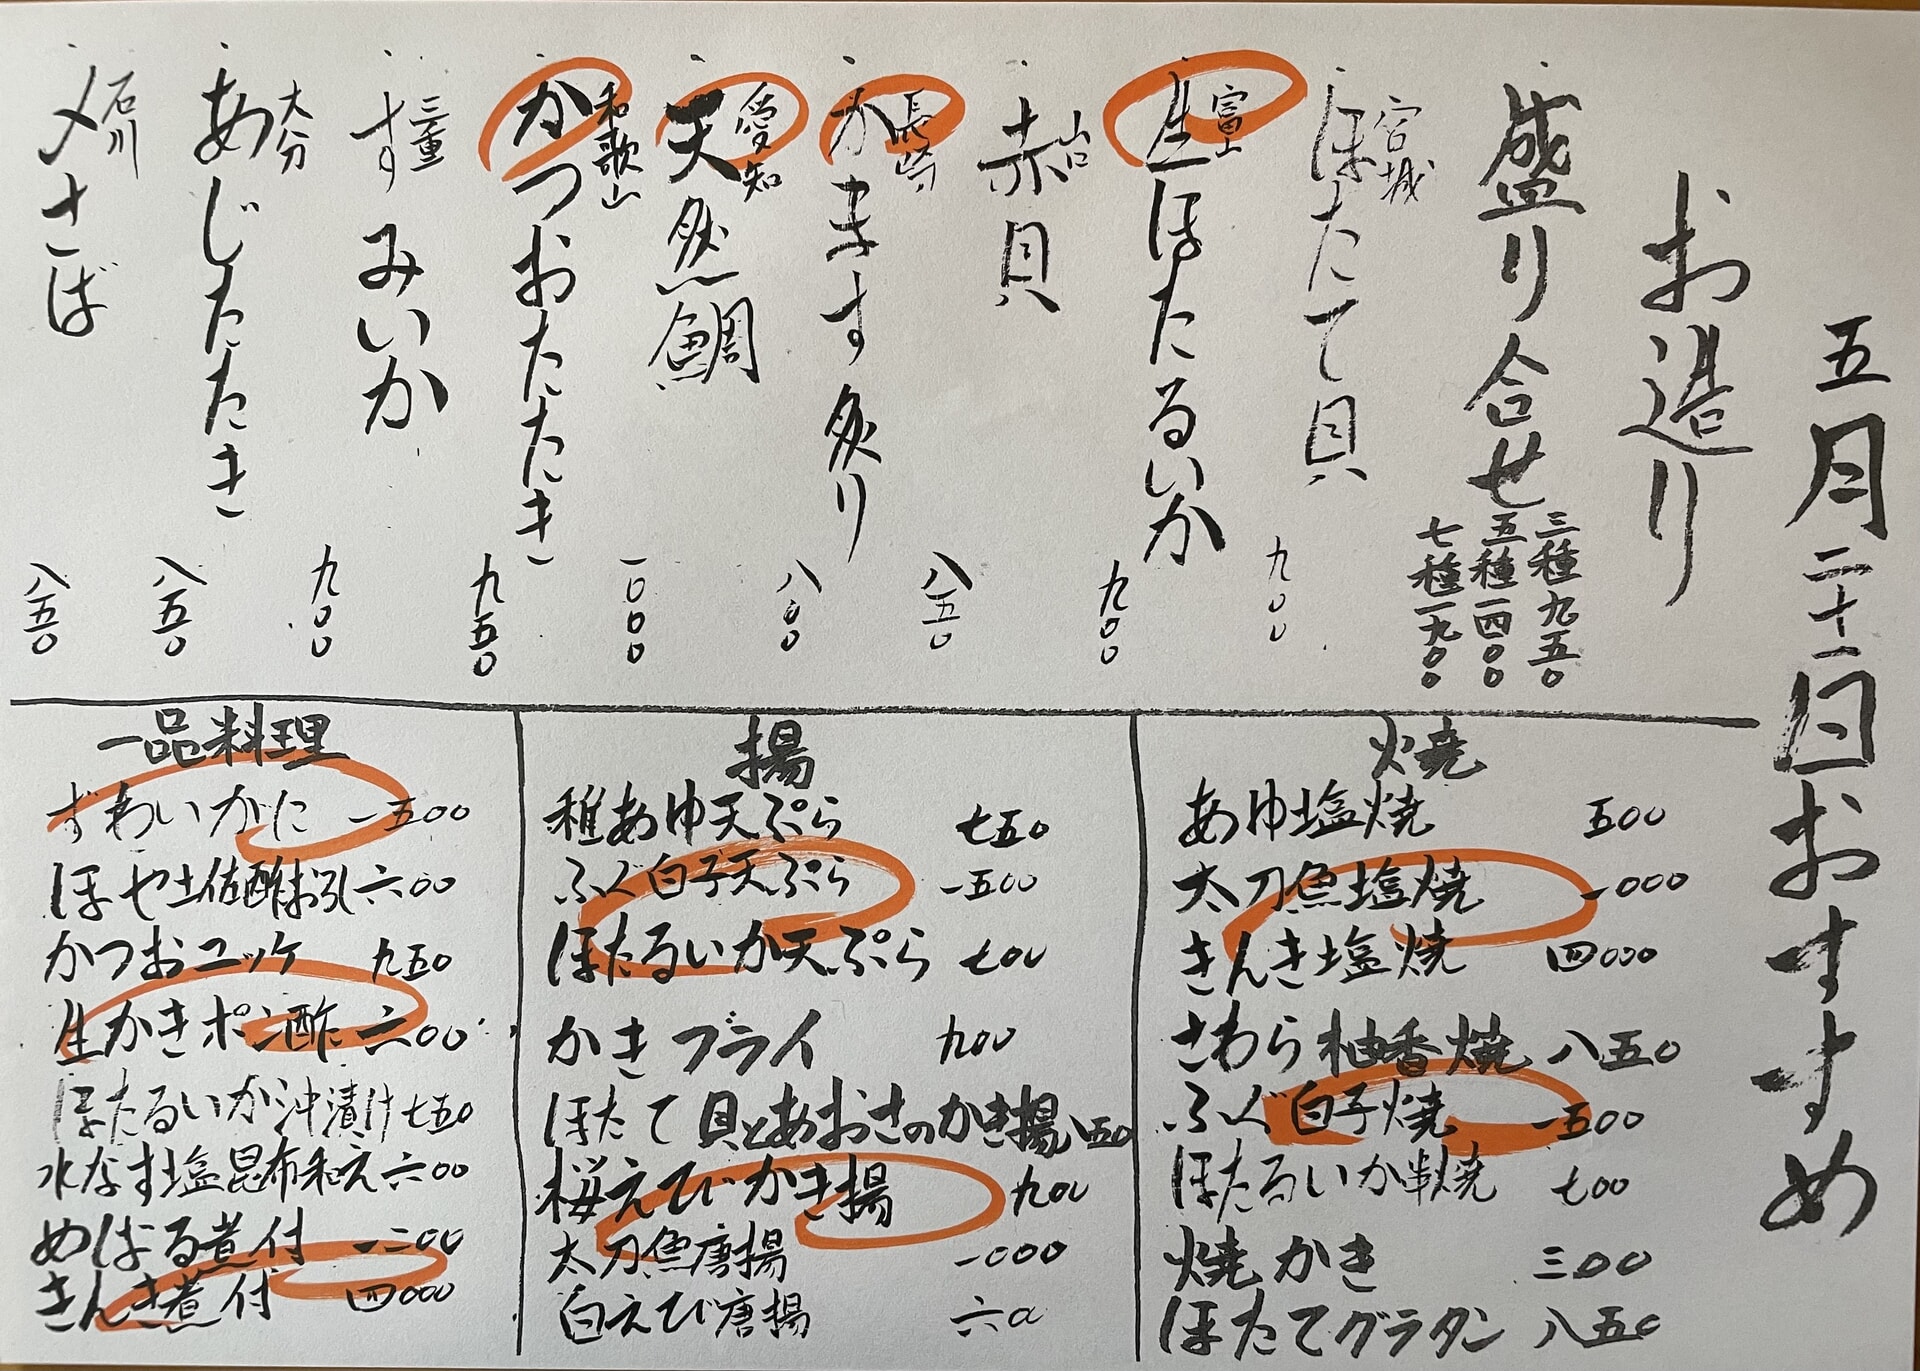 五月二十一日おすすめ
お造り
盛り合せ
三種九五〇
五種一四〇〇
七種一九〇〇
宮城
ほたて貝
九〇〇
富山
生ほたるいか
九〇〇
山口
赤貝
八五〇
長崎
かます炙り
八〇〇
愛知
天然鯛
一〇〇〇
和歌山
かつおたたき
九五〇
三重
すみいか
九〇〇
大分
あじたたき
八五〇
石川
〆さば
八五〇
焼
あゆ塩焼 五〇〇
太刀魚塩焼 一〇〇〇
きんき塩焼 四〇〇〇
さわら柚香焼 八五〇
ふぐ白子焼 一五〇〇
ほたるいか串焼 七〇〇
焼かき 三〇〇
ほたてグラタン 八五〇
揚
稚あゆ天ぷら 七五〇
ふぐ白子天ぷら 一五〇〇
ほたるいか天ぷら 七〇〇
かきフライ 九〇〇
ほたて貝とあおさのかき揚
桜えびかき揚 九〇〇
太刀魚唐揚 一〇〇〇
白えび唐揚 六〇〇
一品料理
ずわいがに 一五〇〇
ほや土佐酢 六〇〇
かつおユッケ 九五〇
生かきポン酢 六〇〇
ほたるいか沖漬け 七五〇
水なす塩昆布和え 六〇〇
めばる煮付 一二〇〇
きんき煮付 四〇〇〇